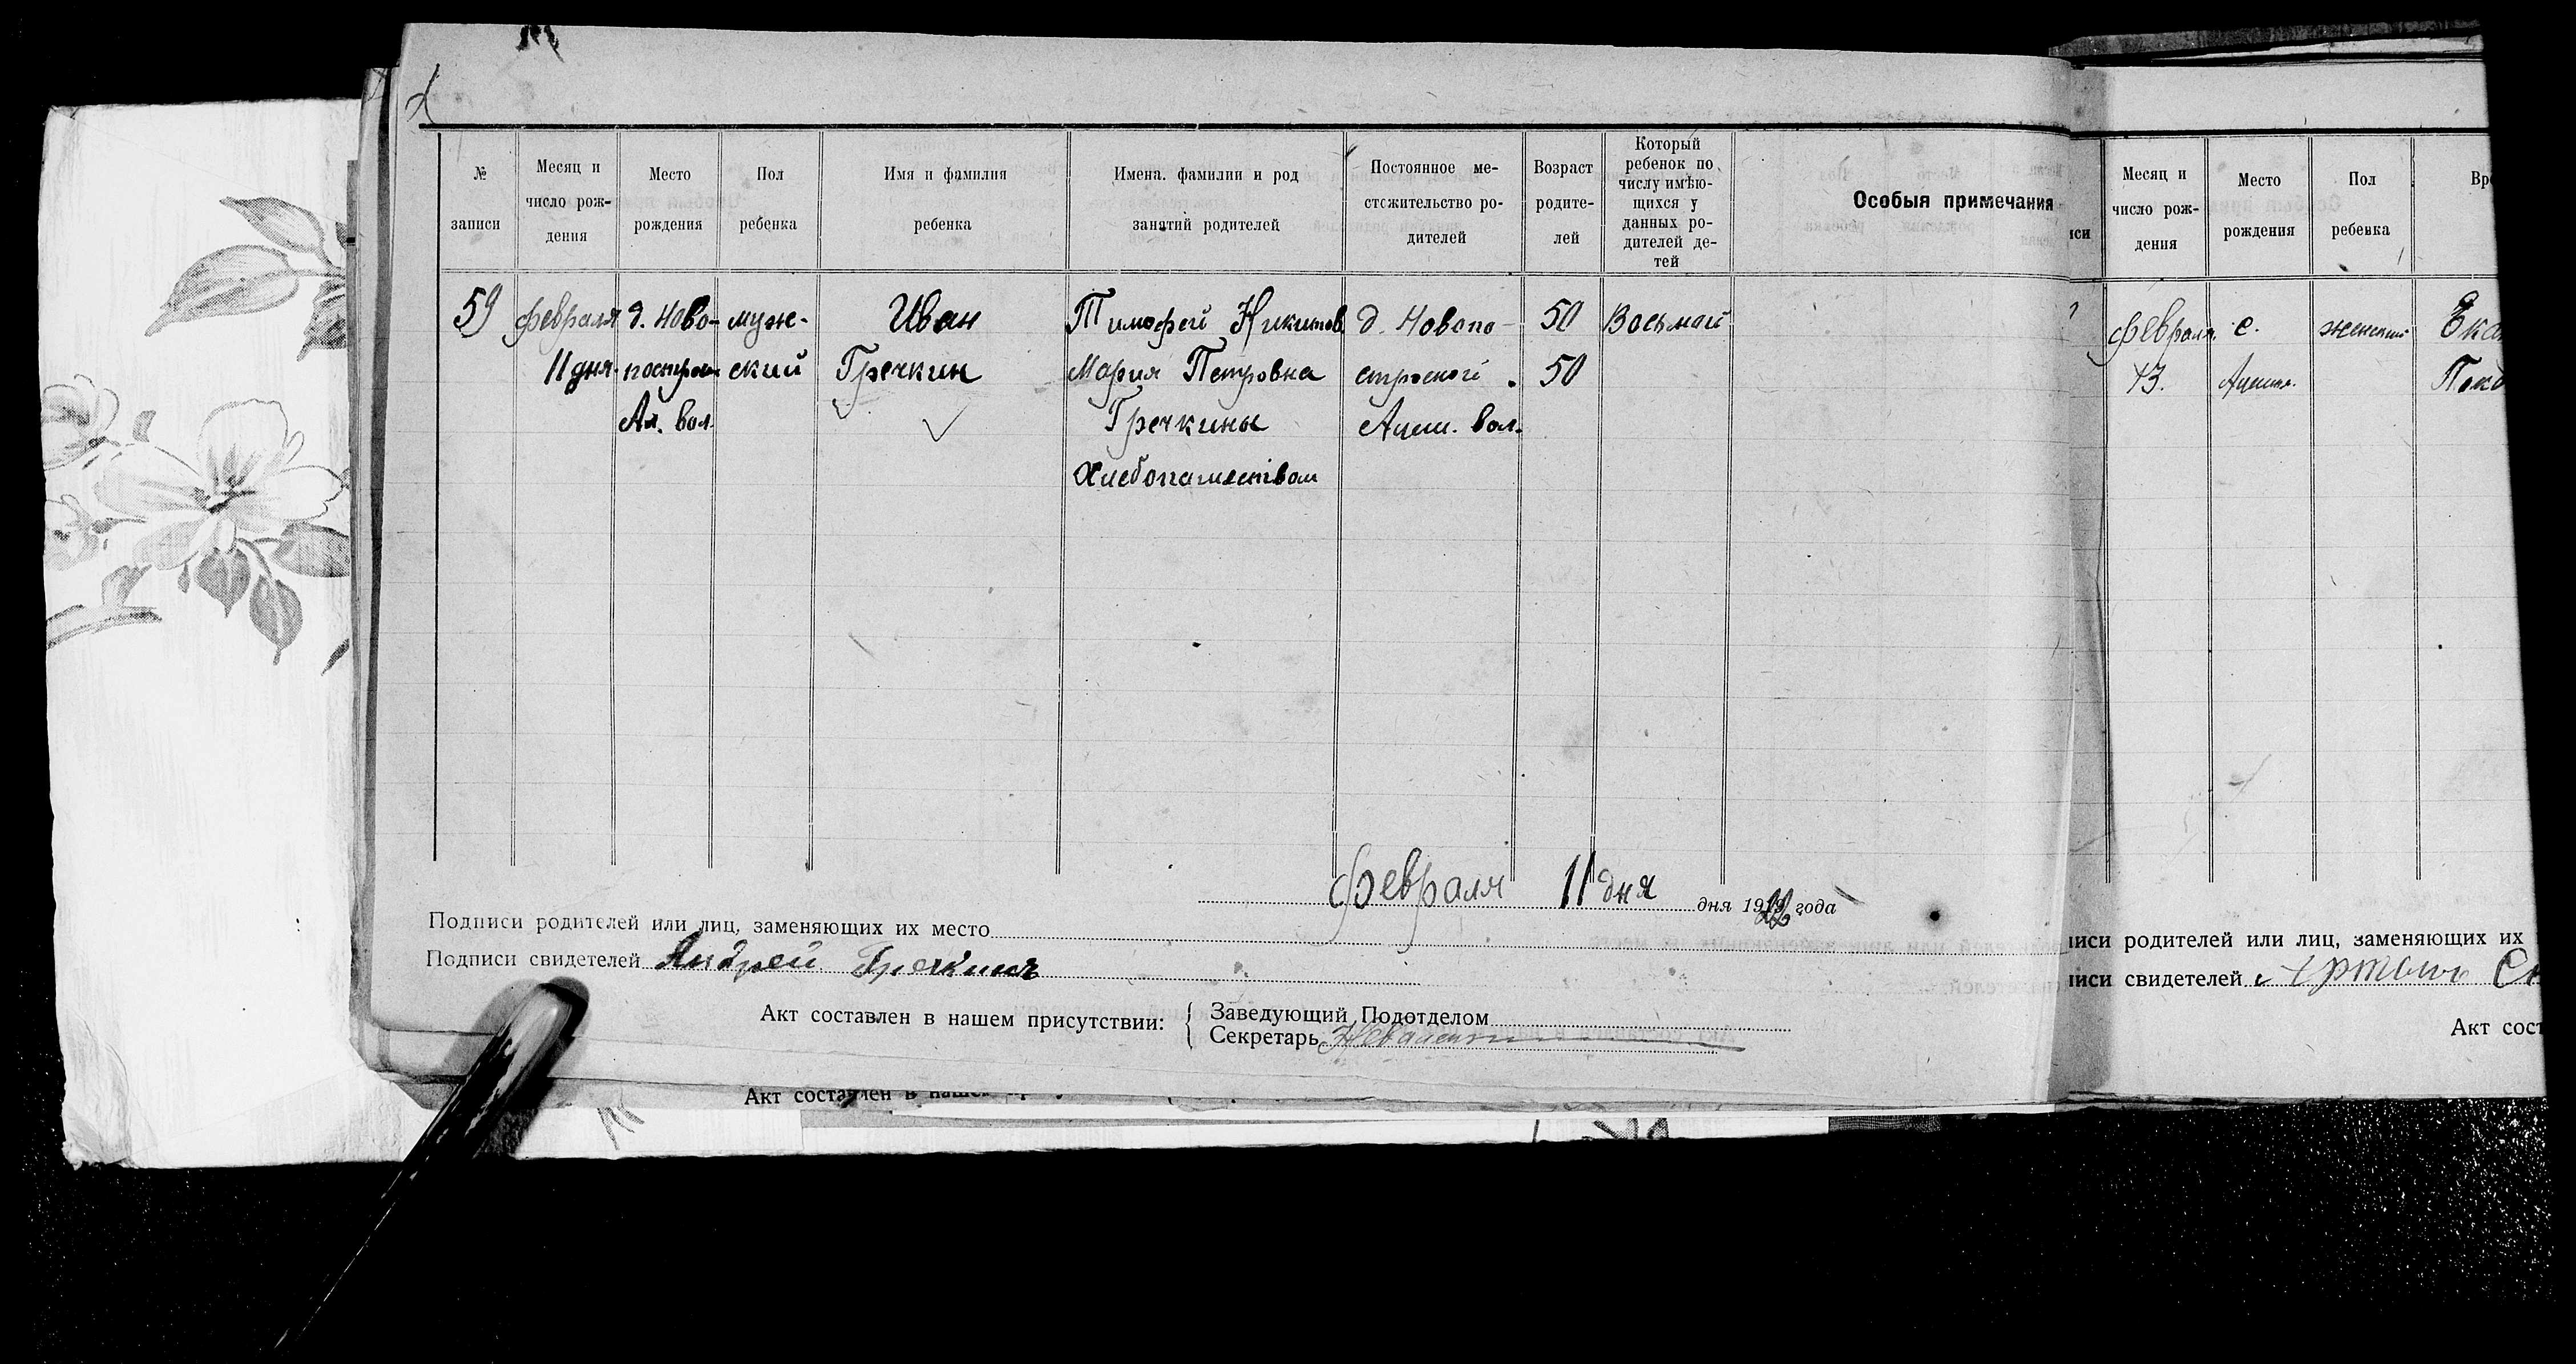 № записи
Месяц и число рождения
Место рождения
Пол ребенка
Имя и фамилия ребенка
Имена. фамилии и род занятий родителей
Постоянное местожительство родителей
Возраст родителей
Который ребенок по числу имѣющихся у данных родителей детей
Особыя примечания
59 февраля д. Ново- муж- Иван Тимофей Никитов д. Новопо- 50 Восьмой
11 дня построй ский Гречкин Мария Петровна строеной 50
Ал. вол. Гречкины Ачеш. вол.
Хлебопашеством
февраля 11 дня дня 19 22 года
Подписи родителей или лиц, заменяющих их место
Подписи свидетелей Андрей Гречкинъ
Акт составлен в нашем присутствии:
Заведующий Подотделом
Секретарь
Акт составлен в нашем
иси
Месяц и число рождения
Место рождения
Пол ребенка
февраля с. женский Ека
13. Пок
иси родителей или лиц, заменяющих их
иси свидетелей
Акт сост